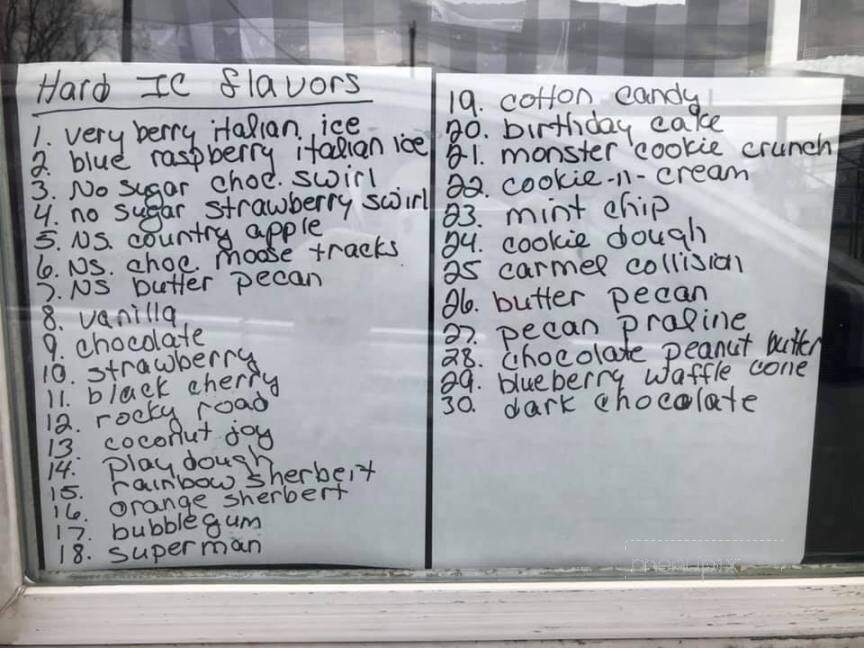 Hard IC flavors
1. very berry italian ice
2. blue raspberry italian ice
3. No sugar choc. swirl
4. no sugar strawberry swirl
5. NS. country apple
6. NS. choc. moose tracks
7. NS butter pecan
8. vanilla
9. chocolate
10. strawberry
11. black cherry
12. rocky road
13. coconut joy
14. play dough
15. rainbow sherbert
16. orange sherbert
17. bubblegum
18. superman
19. cotton candy
20. birthday cake
21. monster cookie crunch
22. cookie-n-cream
23. mint chip
24. cookie dough
25 carmel collision
26. butter pecan
27. pecan praline
28. chocolate peanut butter
29. blueberry waffle cone
30. dark chocolate